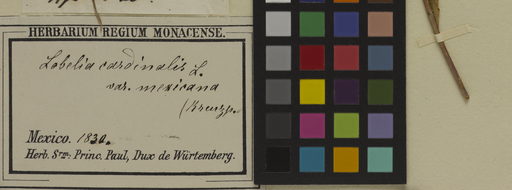 HERBARIUM REGIUM MONACENSE.
Lobelia cardinalis L.
var. mexicana
Mexico. 1830.
Herb. Srm. Princ. Paul, Dux de Würtemberg.